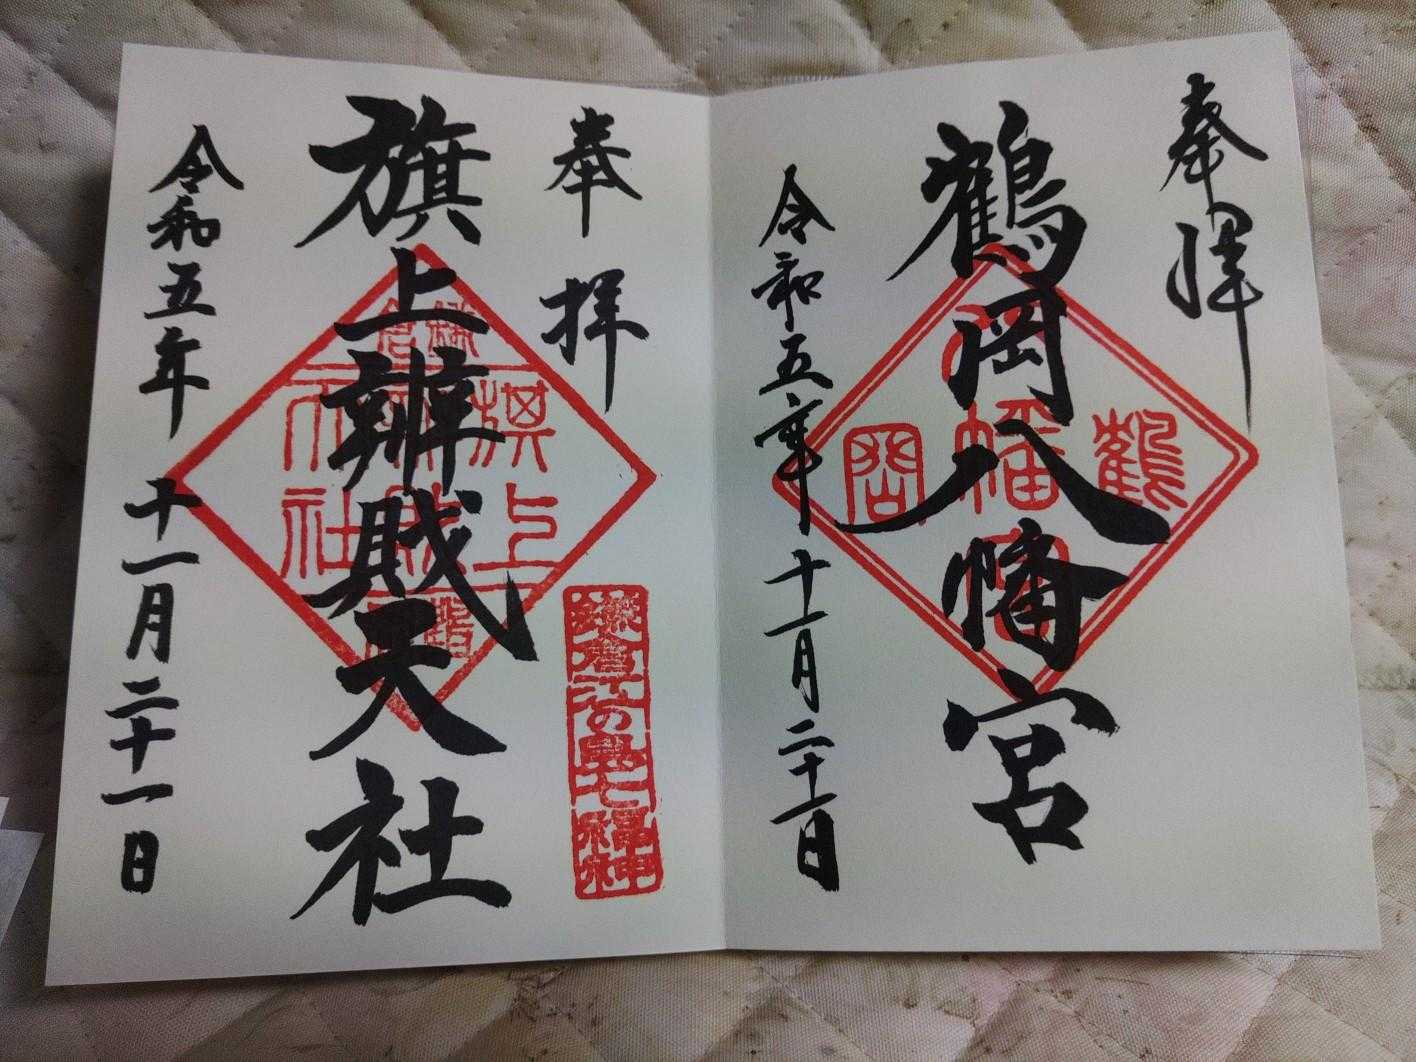 奉拝
鶴岡八幡宮
鶴
幡
岡
令和五年十一月二十一日
奉拝
鎌倉江の島七福神
旗上辨財天社
鎌倉
旗上
社
令和五年十一月二十一日